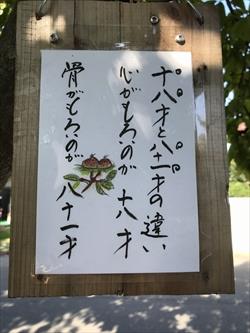 十八才と八十一才の違い
心がもろいのが 十八才
骨がもろいのが 八十一才